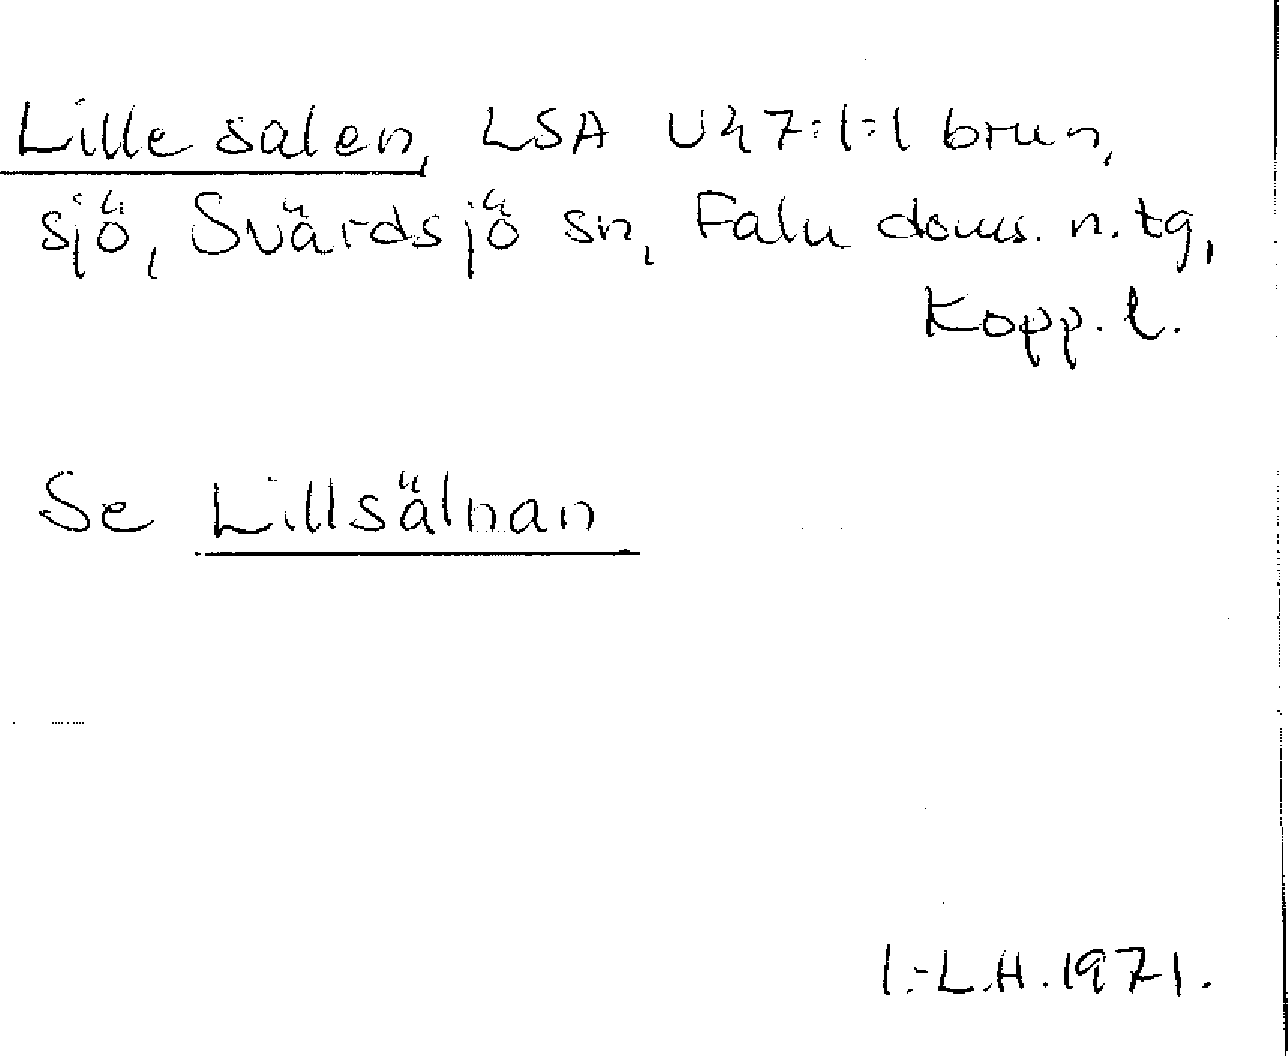 Lille salen, LSA U47:1:1 brun,
sjö, Svärdsjö sn, Falu doms. n. tg,
Kopp. l.
Se Lillsälnan
I.-L.H. 1971.